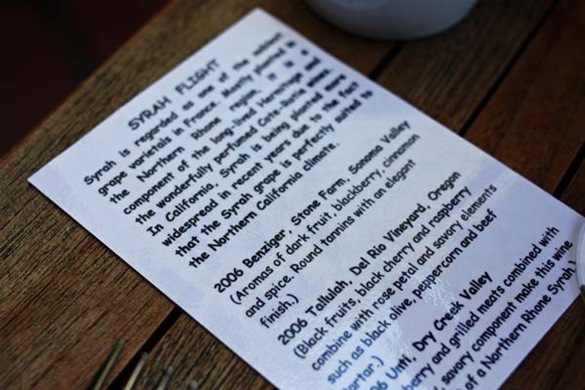 SYRAH FLIGHT
Syrah is regarded as one of the noblest
grape varietals in France. Mostly planted in
the Northern Rhone region, it is a
component of the long-lived Hermitage and
the wonderfully perfumed Cote-Rotie
In California, Syrah is being planted more
widespread in recent years due to the fact
that the Syrah grape is perfectly suited to
the Northern California climate.
2006 Benziger, Stone Farm, Sonoma Valley
(Aromas of dark fruit, blackberry, cinnamon
and spice. Round tannins with an elegant
finish.)
2006 Tallulah, Del Rio Vineyard, Oregon
(Black fruits, black cherry and raspberry
combine with rose petal and savory elements
such as black olive, peppercorn and beef
tartar.)
Unti, Dry Creek Valley
berry and grilled meats combined with
savory component make this wine
of a Northern Rhone Syrah